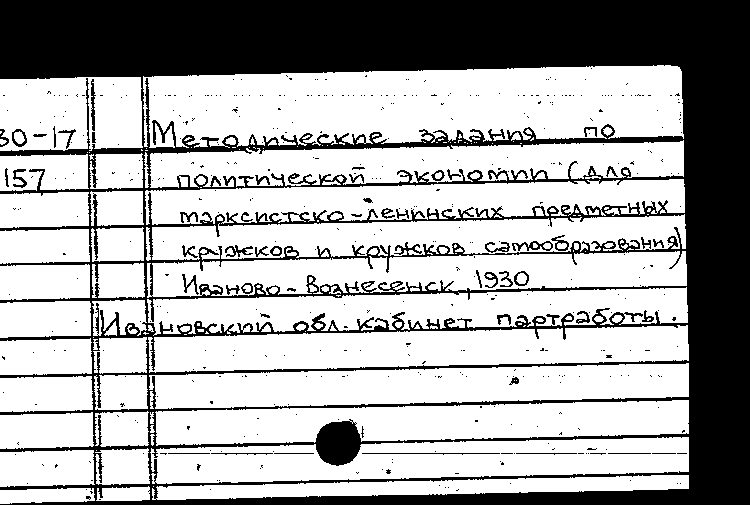 30-17 Методические задания по
157 политической экономии (для
марксистско-ленинских предметных
кружков и кружков самообразования)
Иваново-Вознесенск, 1930.
Ивановский обл. кабинет партработы.